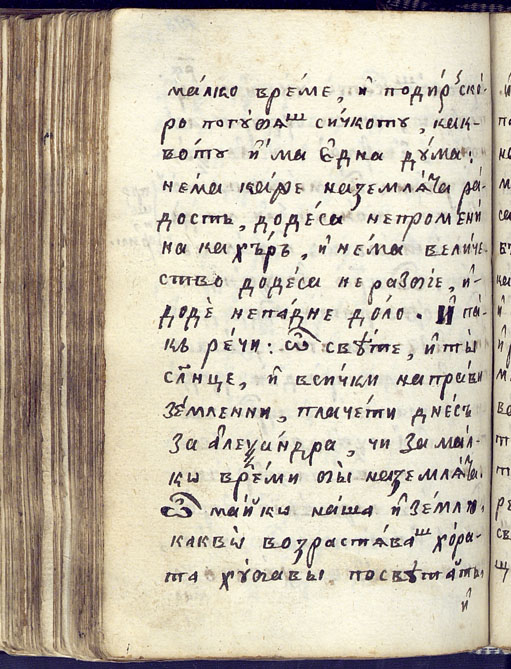 ма́лко вре́ме, и҆ подир̾ ско́-
ро погꙋбѧ́ш си́чкоту, как-
во́ту и҆́ма є҆дна дꙋ́ма:
не́ма ка́же на землѧ́та ра́-
дость, доде́са непромени́
на кахъ́ръ, и҆ не́ма вели́че-
ство доде́са не разбїе, и҆-
додѐ непа́дне до́ло. И҆ па́-
къ ре́чи: ѽ свѣ́те, и҆ ты̀
сл҃нце, и҆ вси́чки напра́ви
зе́мленни, плаче́ти дне́съ
за а҆леѯа́ндра, чи за ма́л-
ко вре́ми бы̀ на землѧ́та.
ѽ ма́йко на́ша и҆ зе́млю,
какво̀ возраста́ваш хо́ра-
та хꙋ́бавы по свѣта́тъ,
и҆